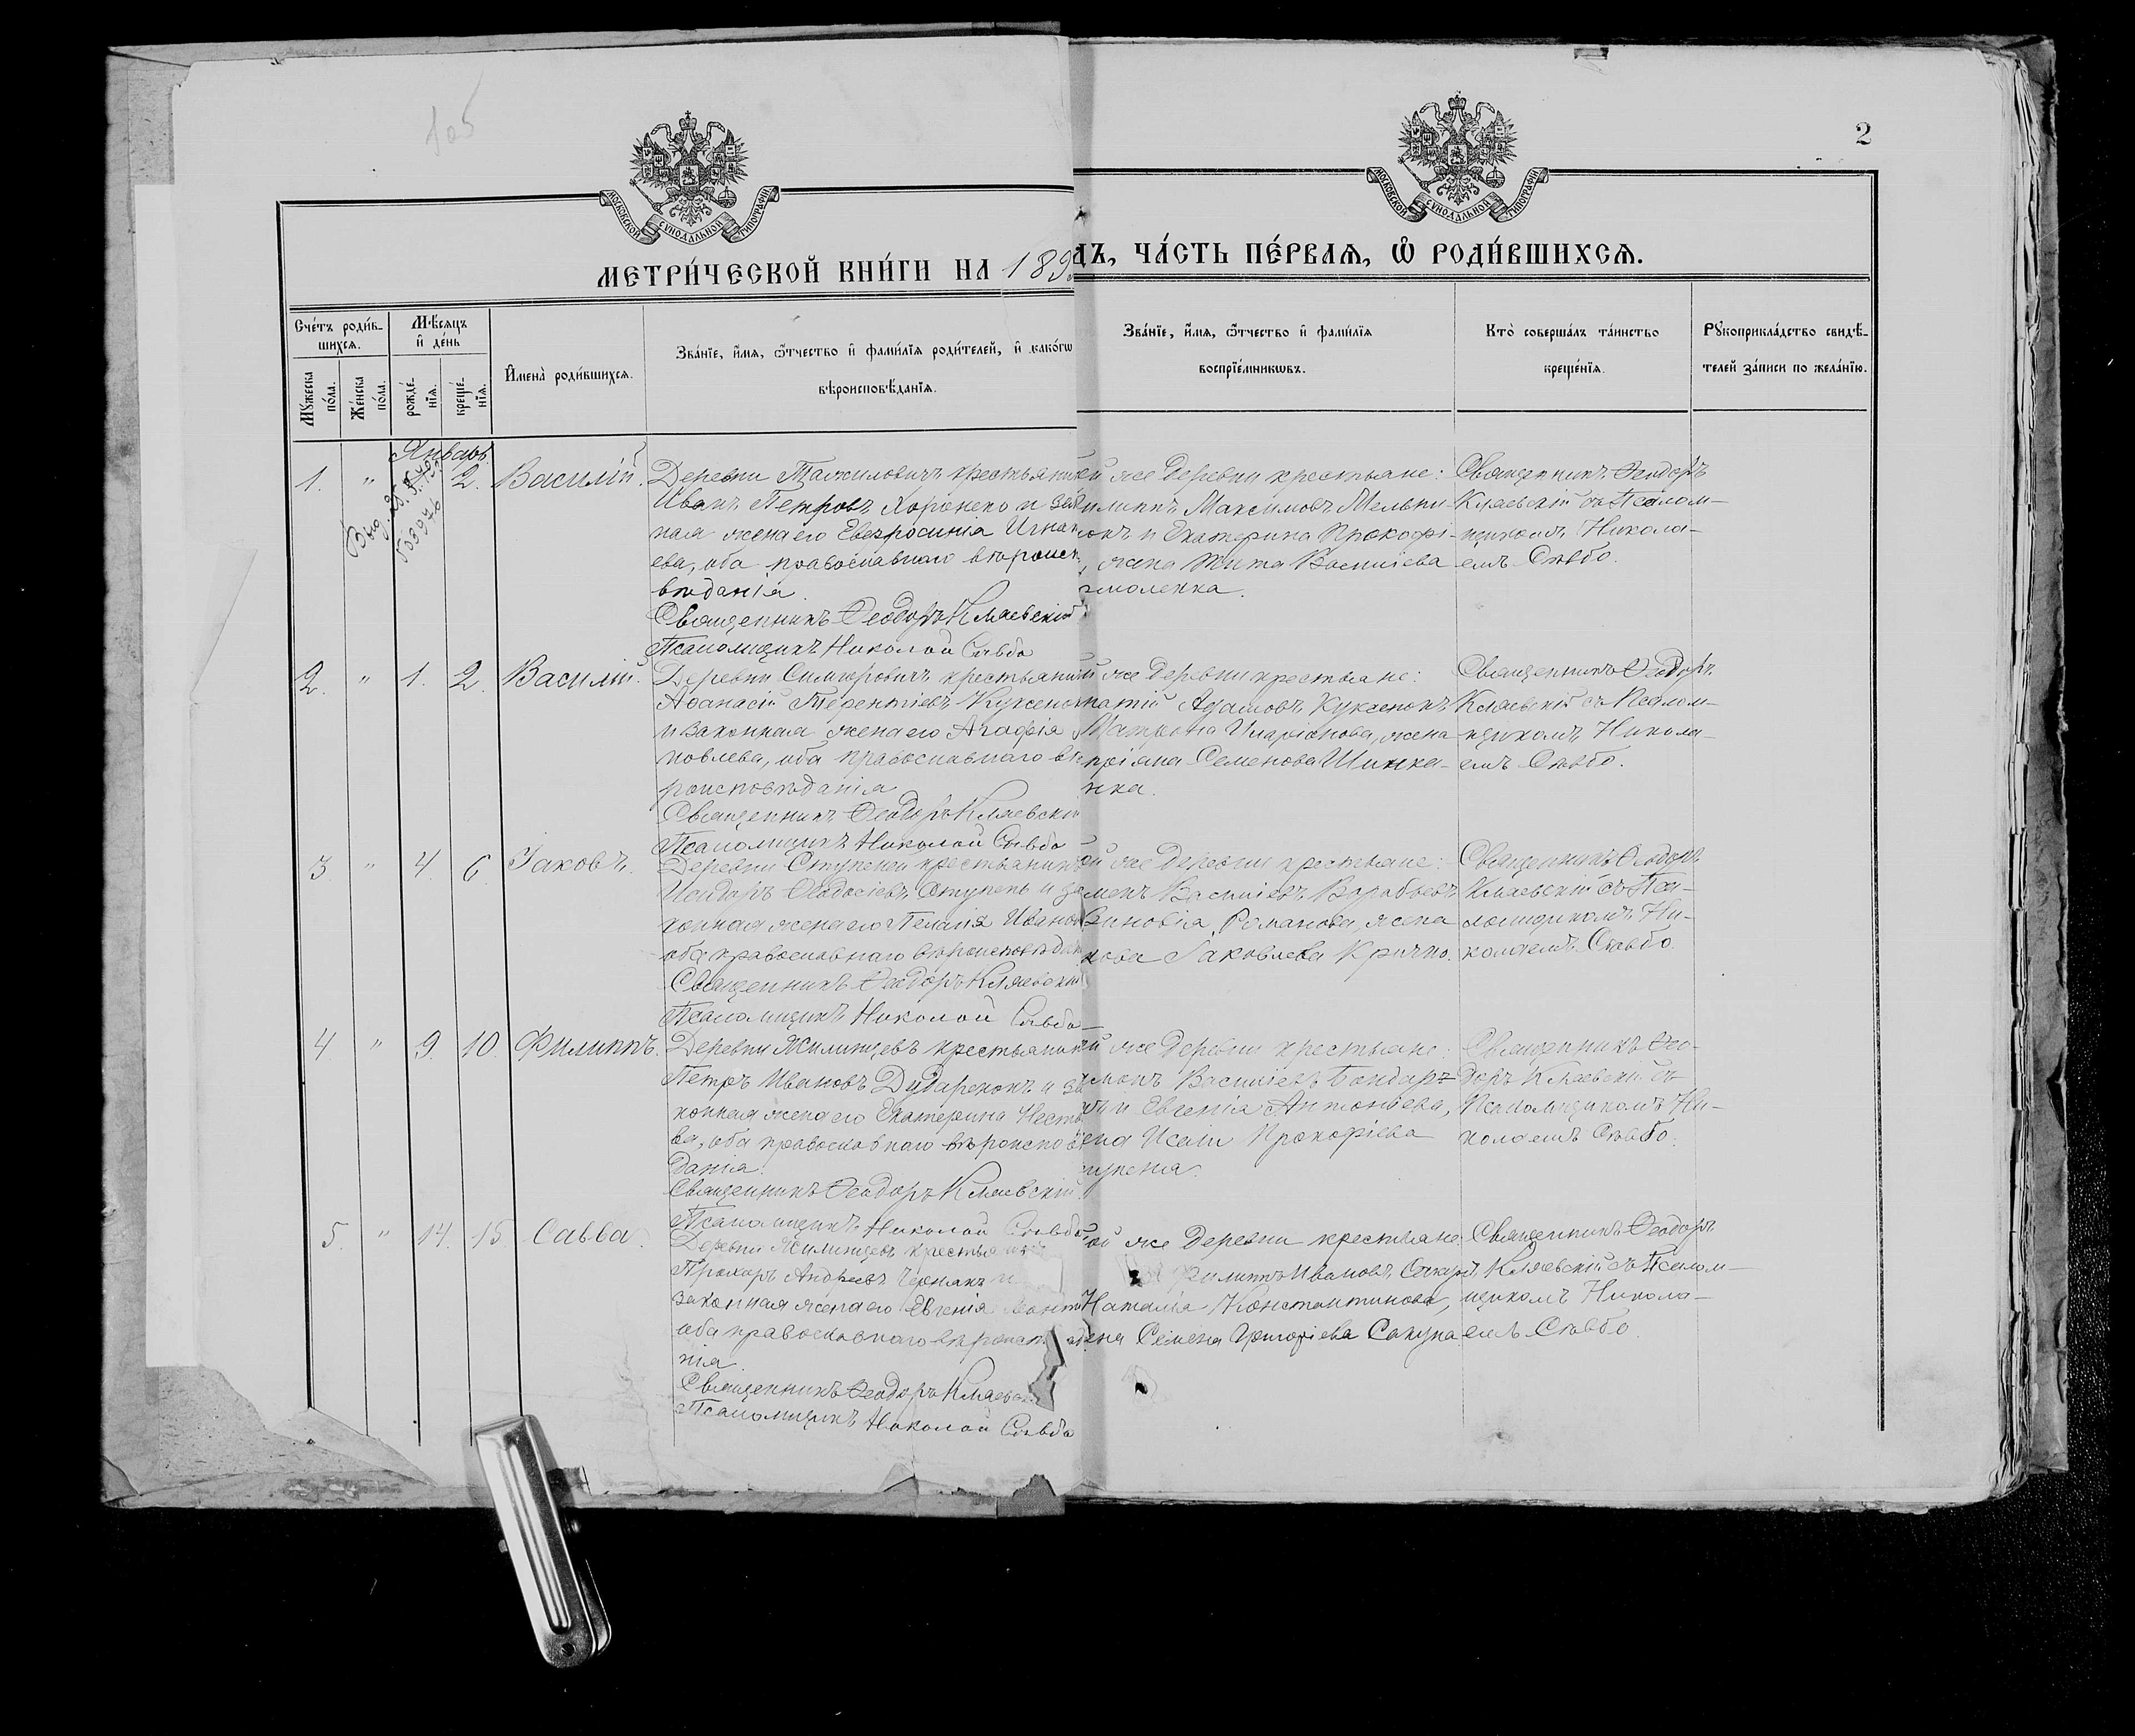 105
2
МОСКОВСКОЙ СУНОДАЛЬНОЙ ТИПОГРАФІИ
МОСКОВСКОЙ СУНОДАЛЬНОЙ ТИПОГРАФІИ
МЕТРИ́ЧЕСКОЙ КНИ́ГИ НА 189
ДЪ, ЧА́СТЬ ПЕ́РВАѦ, Ѡ҆ РОДИ́ВШИХСѦ.
Сче́тъ роди́в-
шихсѧ.
Мꙋ́жеска по́ла.
Же́нска по́ла.
Мѣ́сѧцъ
и҆ де́нь
рожде́-
нїѧ.
креще́-
нїѧ.
И҆мена̀ роди́вшихсѧ.
Зва́нїе, и҆́мѧ, ѻ҆́тчество и҆ фами́лїѧ роди́телей, и҆ како́гѡ
вѣроисповѣ́данїѧ.
Зва́нїе, и҆́мѧ, ѻ҆́тчество и҆ фами́лїѧ
воспрїе́мникѡвъ.
Кто̀ соверша́лъ та́инство
креще́нїѧ.
Рꙋкоприкла́дство свидѣ́-
телей за́писи по жела́нїю.
Январь.
1. " 2. Василій.
Деревни крестьянинъ
Иванъ Петровъ и зак
ная жена его Евфросинія Игнат
ева, оба православнаго вѣроисп
вѣданія.
Священникъ Ѳеодоръ Кляевскій
Псаломщикъ Николай Сѣвбо
ей же деревни крестьяне:
Максимовъ Мельни-
окъ и Екатерина Прокофі-
жена Тита Васильева
моленка.
Священникъ Ѳеодоръ
Кляевскій съ Псалом-
щикомъ Никола-
емъ Сѣвбо.
2. " 1. 2. Василій.
Деревни крестьянин
Аѳанасій Терентіевъ Куксенок
и законная жена его Агафія
ковлева, оба православнаго вѣ
роисповѣданія
Священникъ Ѳеодоръ Кляевскій
Псаломщикъ Николай Сѣвбо
й же деревни крестьяне:
натій Адамовъ Куксенокъ
Матрона Иларіонова, жена
пріяна Семенова Шинка-
нка.
Священникъ Ѳеодоръ
Кляевскій съ Псалом-
щикомъ Никола-
емъ Сѣвбо.
3. " 4. 6. Іаковъ.
Деревни Ступеней крестьянинъ
Исидоръ Ѳеодосіевъ Ступень и за
конная жена его Пелагія Иванов
оба православнаго вѣроисповѣдан
Священникъ Ѳеодоръ Кляевскій
Псаломщикъ Николай Сѣвбо
ой же деревни крестьяне:
менъ Васильевъ Воробьевъ
Зиновія Романова, жена
кова Іаковлева Кричко.
Священникъ Ѳеодоръ
Кляевскій съ Пса-
ломщикомъ Ни-
колаемъ Сѣвбо
4 " 9. 10. Филиппъ.
Деревни Жилинцевъ крестьянин
Петръ Ивановъ Дударенокъ и за
конная жена его Екатерина Несто
ва, оба православнаго вѣроиспов
данія.
Священникъ Ѳеодоръ Кляевскій
Псаломщикъ Николай Сѣвбо
й же деревни крестьяне:
монъ Васильевъ Бондар=
и Евгенія Антоніева,
ена Исаіи Прокофіева
тупеня.
Священникъ Ѳео-
доръ Кляевскій съ
Псаломщикомъ Ни-
колаемъ Сѣвбо.
5. " 14. 15. Савва.
Деревни Жилинцевъ крестьянинъ
Прохоръ Андреевъ Чернякъ и
законная жена его Евгенія
оба православнаго вѣроиспов
нія.
Священникъ Ѳеодоръ Кляевскій
Псаломщикъ Николай Сѣвбо
ой же деревни крестьяне:
Филиппъ Ивановъ
Наталія Константинова,
ена Семена Григоріева Сакуна
Священникъ Ѳеодоръ
Кляевскій съ Псалом-
щикомъ Никола-
емъ Сѣвбо.